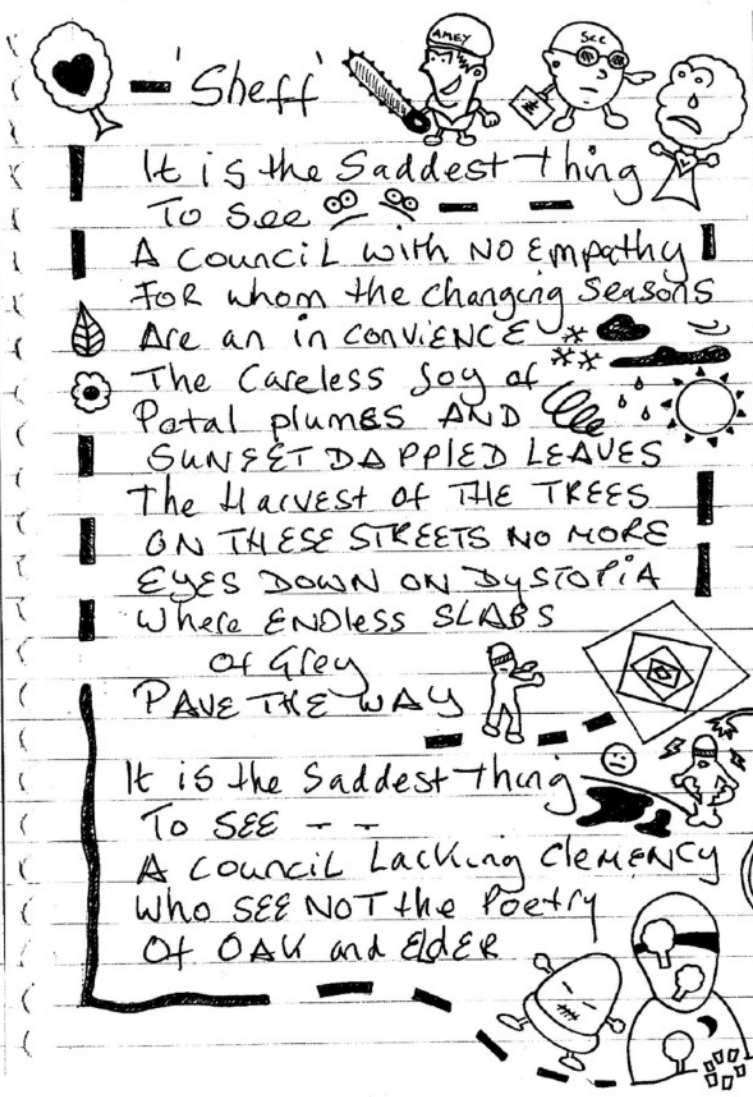 'Sheff'
AMEY
SCC
It is the Saddest Thing
To See
A council with NO Empathy
FOR whom the changing Seasons
Are an in conviENCE
The Careless Joy of
Petal plumES AND
SUNSET DAPPlED LEAVES
The Harvest of THE TREES
ON THESE STREETS NO MORE
EYES DOWN ON DYSTOPiA
Where ENDless SLABS
Of Grey
PAVE THE WAY
It is the Saddest Thing
To SEE - -
A Council Lacking ClemENCY
Who SEE NOT the Poetry
Of OAK and ElDER